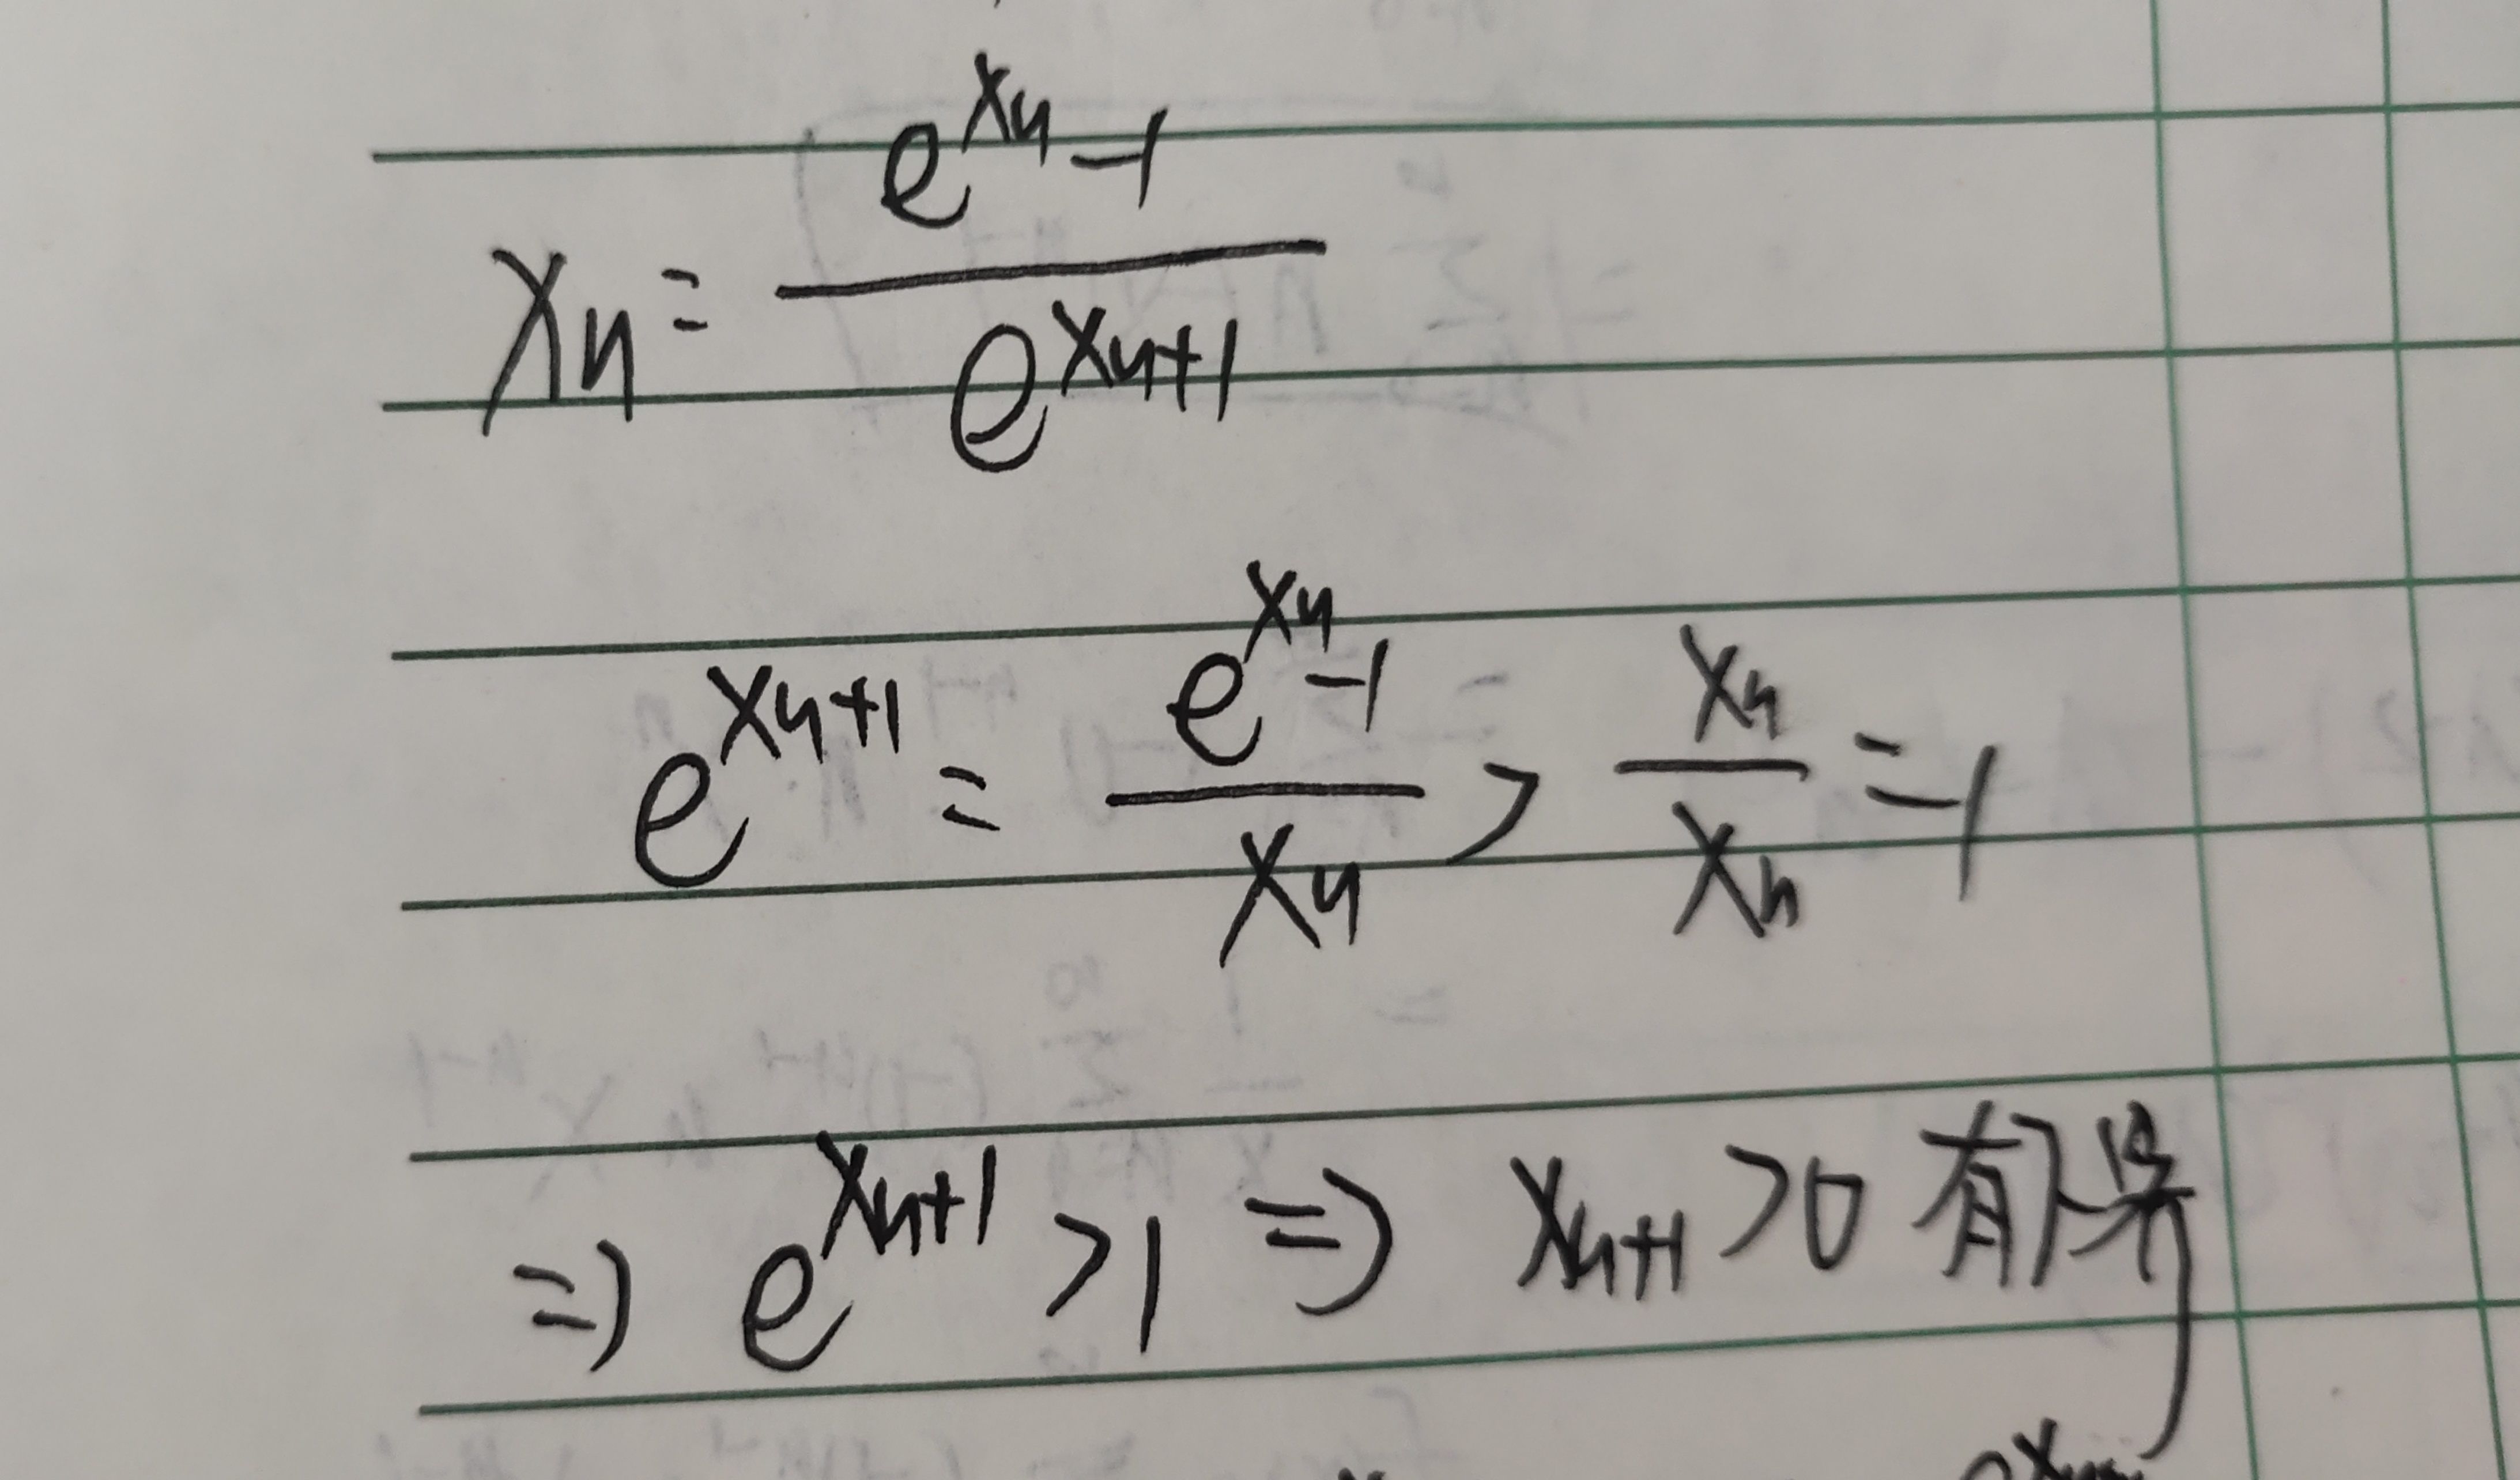 xₙ = (e^{xₙ} - 1) / e^{xₙ₊₁}
e^{xₙ₊₁} = (e^{xₙ} - 1) / xₙ > xₙ / xₙ = 1
⇒ e^{xₙ₊₁} > 1 ⇒ xₙ₊₁ > 0 有下界